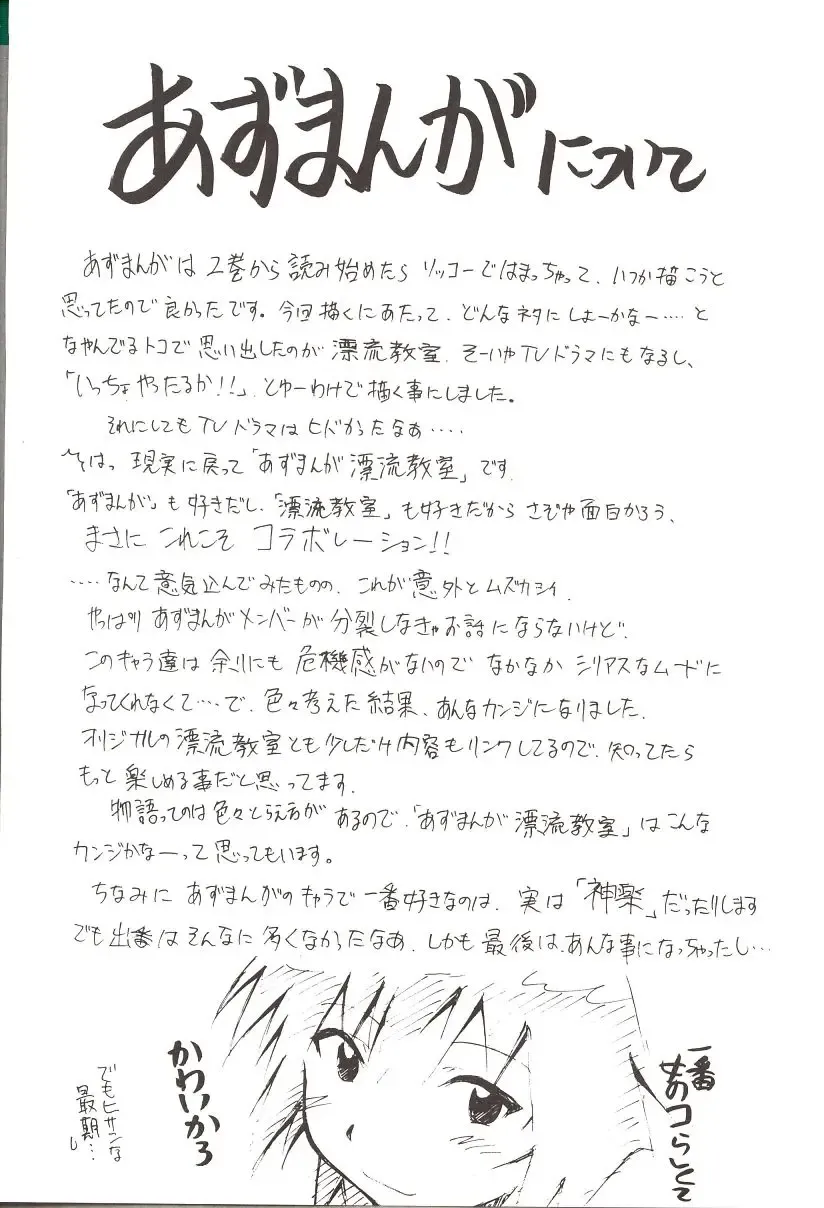 あずまんがについて
あずまんがは2巻から読み始めたらソッコーではまっちゃって、いつか描こうと
思ってたので良かったです。今回描くにあたって、どんなネタにしよーかなー‥‥と
なやんでるトコで思い出したのが漂流教室、そーいやTVドラマにもなるし、
「いっちょやったるか!!」、とゆーわけで描く事にしました。
それにしてもTVドラマはヒドかったなぁ‥‥
現実に戻って「あずまんが漂流教室」です。
「あずまんが」も好きだし、「漂流教室」も好きだからさぞや面白かろう、
まさにこれこそコラボレーション!!
‥‥なんて意気込んでみたものの、これが意外とムズカシイ。
やっぱりあずまんがメンバーが分裂しなきゃお話にならないけど、
このキャラ達は余りにも危機感がないのでなかなかシリアスなムードに
なってくれなくて‥‥で、色々考えた結果、あんなカンジになりました。
オリジナルの漂流教室とも少しだけ内容もリンクしてるので、知ってたら
もっと楽しめる事だと思ってます。
物語ってのは色々とらえ方があるので、「あずまんが漂流教室」はこんな
カンジかなーって思ってもいます。
ちなみにあずまんがのキャラで一番好きなのは、実は「神楽」だったりします
でも出番はそんなに多くなかったなぁ、しかも最後は、あんな事になっちゃったし…
一番
らしくて
かわいかろ
でもヒサンな
最期…